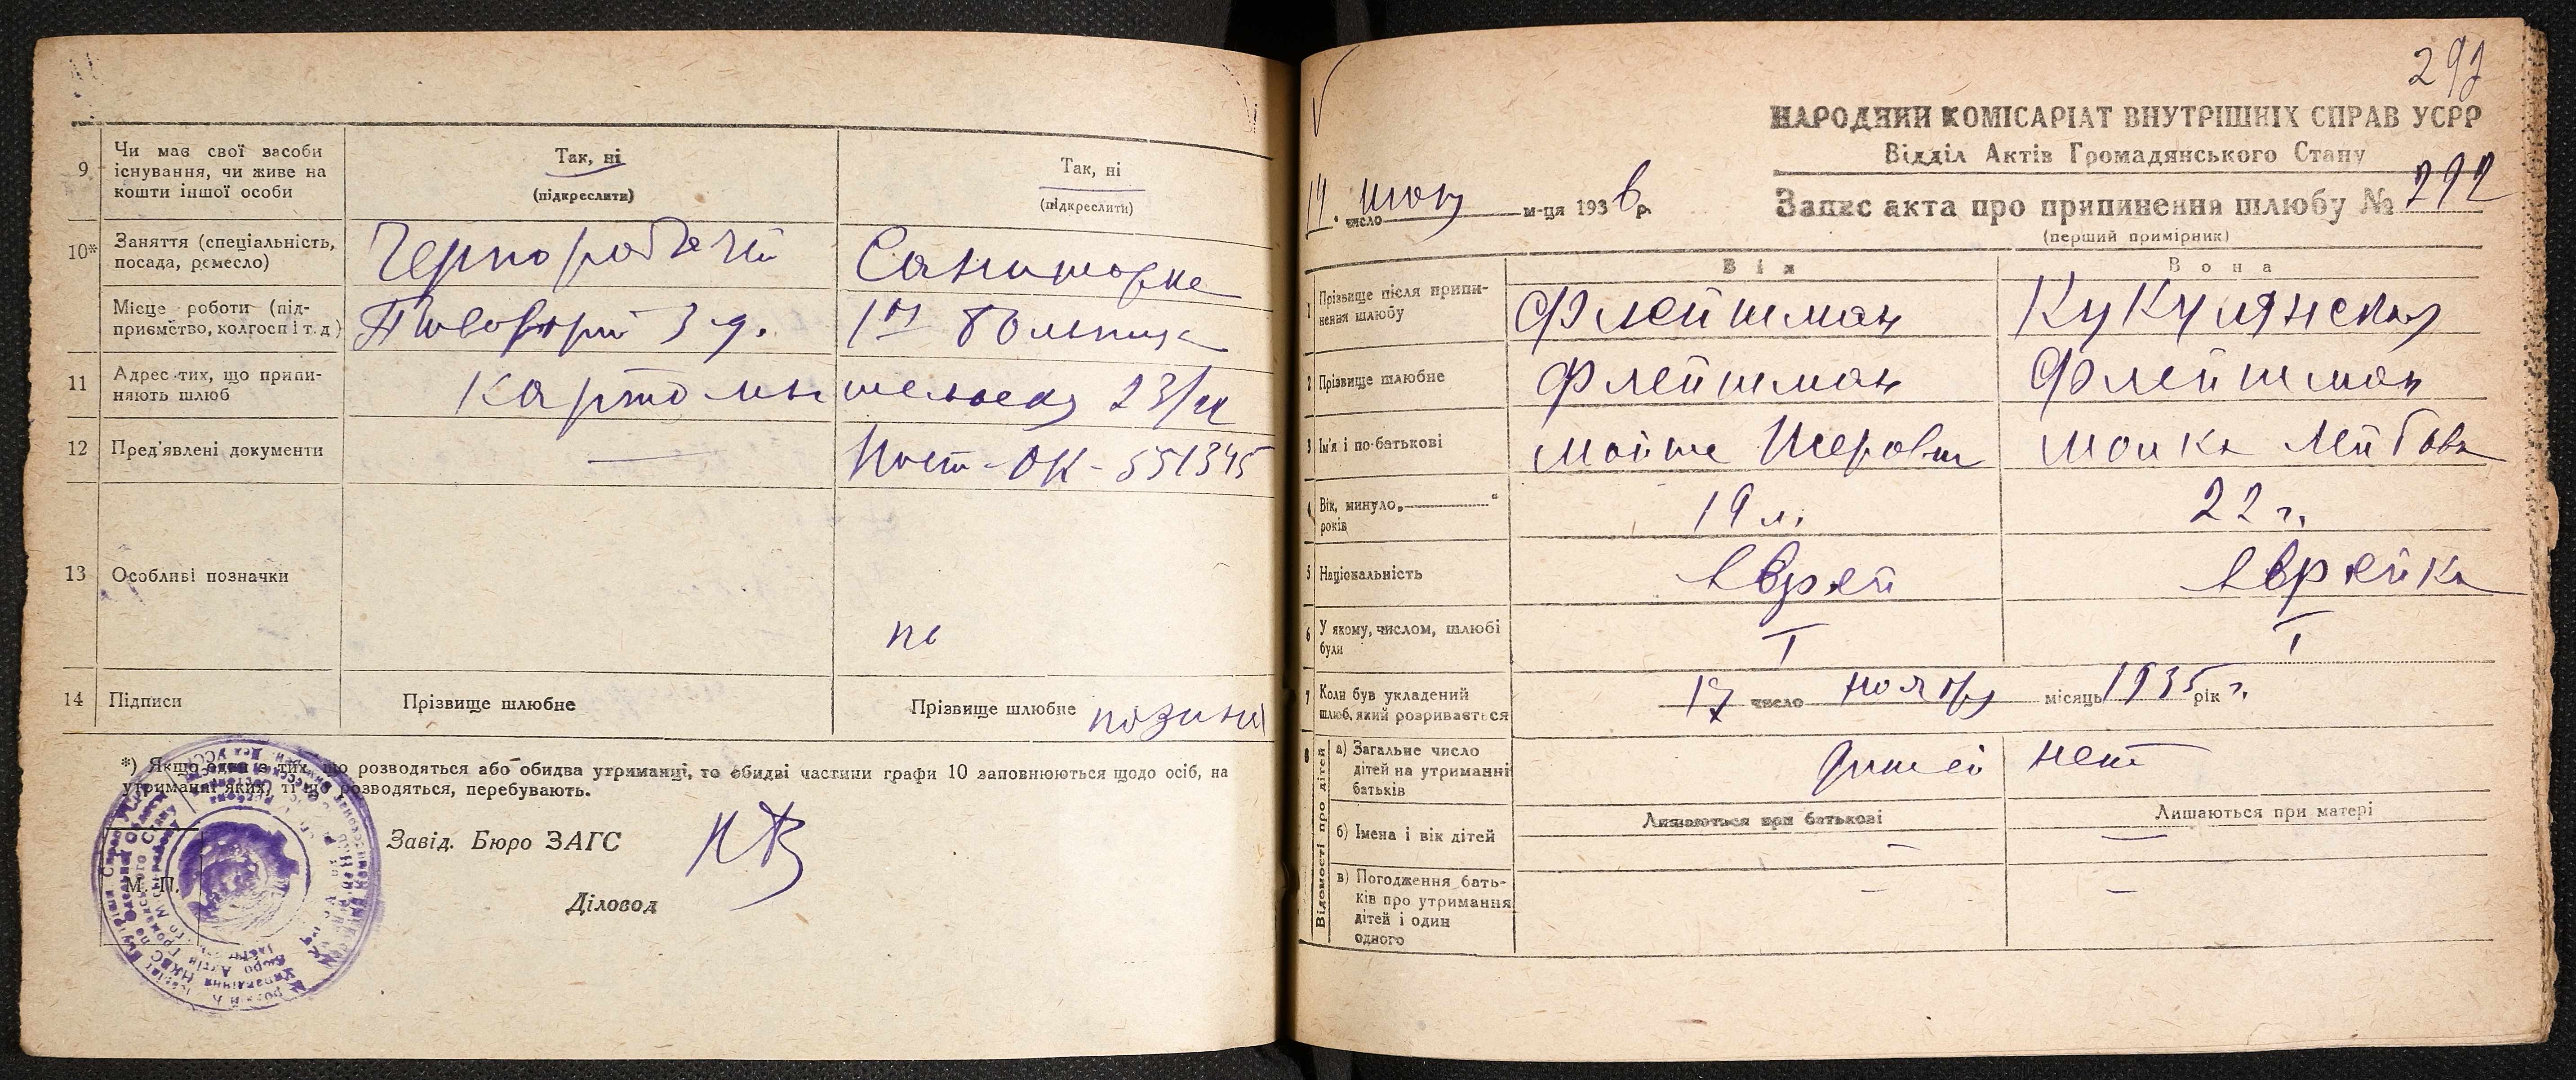 9
Чи має свої засоби
існування, чи живе на
кошти іншої особи
Так, ні
(підкреслити)
Так, ні
(підкреслити)
10*
Заняття (спеціальність,
посада, ремесло)
Чернорабочий
Санитарка
Місце роботи (під-
приємство, колгосп і т. д)
1й больница
11
Адрес тих, що припи-
няють шлюб
23/
12
Пред'явлені документи
—
ОК - 551345
13
Особливі позначки
14
Підписи
Прізвище шлюбне
Прізвище шлюбне
*) Якщо один з тих, що розводяться або обидва утриманці, то обидві частини графи 10 заповнюються щодо осіб, на
утриманні яких, ті що розводяться, перебувають.
М. П.
Завід. Бюро ЗАГС
Діловод
292
НАРОДНИЙ КОМІСАРІАТ ВНУТРІШНІХ СПРАВ УСРР
Відділ Актів Громадянського Стану
14. число м-ця 1936 р.
Запис акта про припинення шлюбу № 292
(перший примірник)
Він
Вона
1
Прізвище після припи-
нення шлюбу
Флейшман
Кукулянская
2
Прізвище шлюбне
Флейшман
Флейшман
3
Ім'я і по-батькові
Мойше Шерович
Лейбова
4
Вік, минуло „ “
років
19 л.
22 г.
5
Національність
Еврей
Еврейка
6
У якому, числом, шлюбі
були
I
I
7
Коли був укладений
шлюб, який розривається
17 число ноября місяць 1935 рік г.
8
Відомості про дітей
а) Загальне число
дітей на утриманні
батьків
детей нет
Лишаються при батькові
Лишаються при матері
б) Імена і вік дітей
–
—
в) Погодження бать-
ків про утримання
дітей і один
одного
–
–